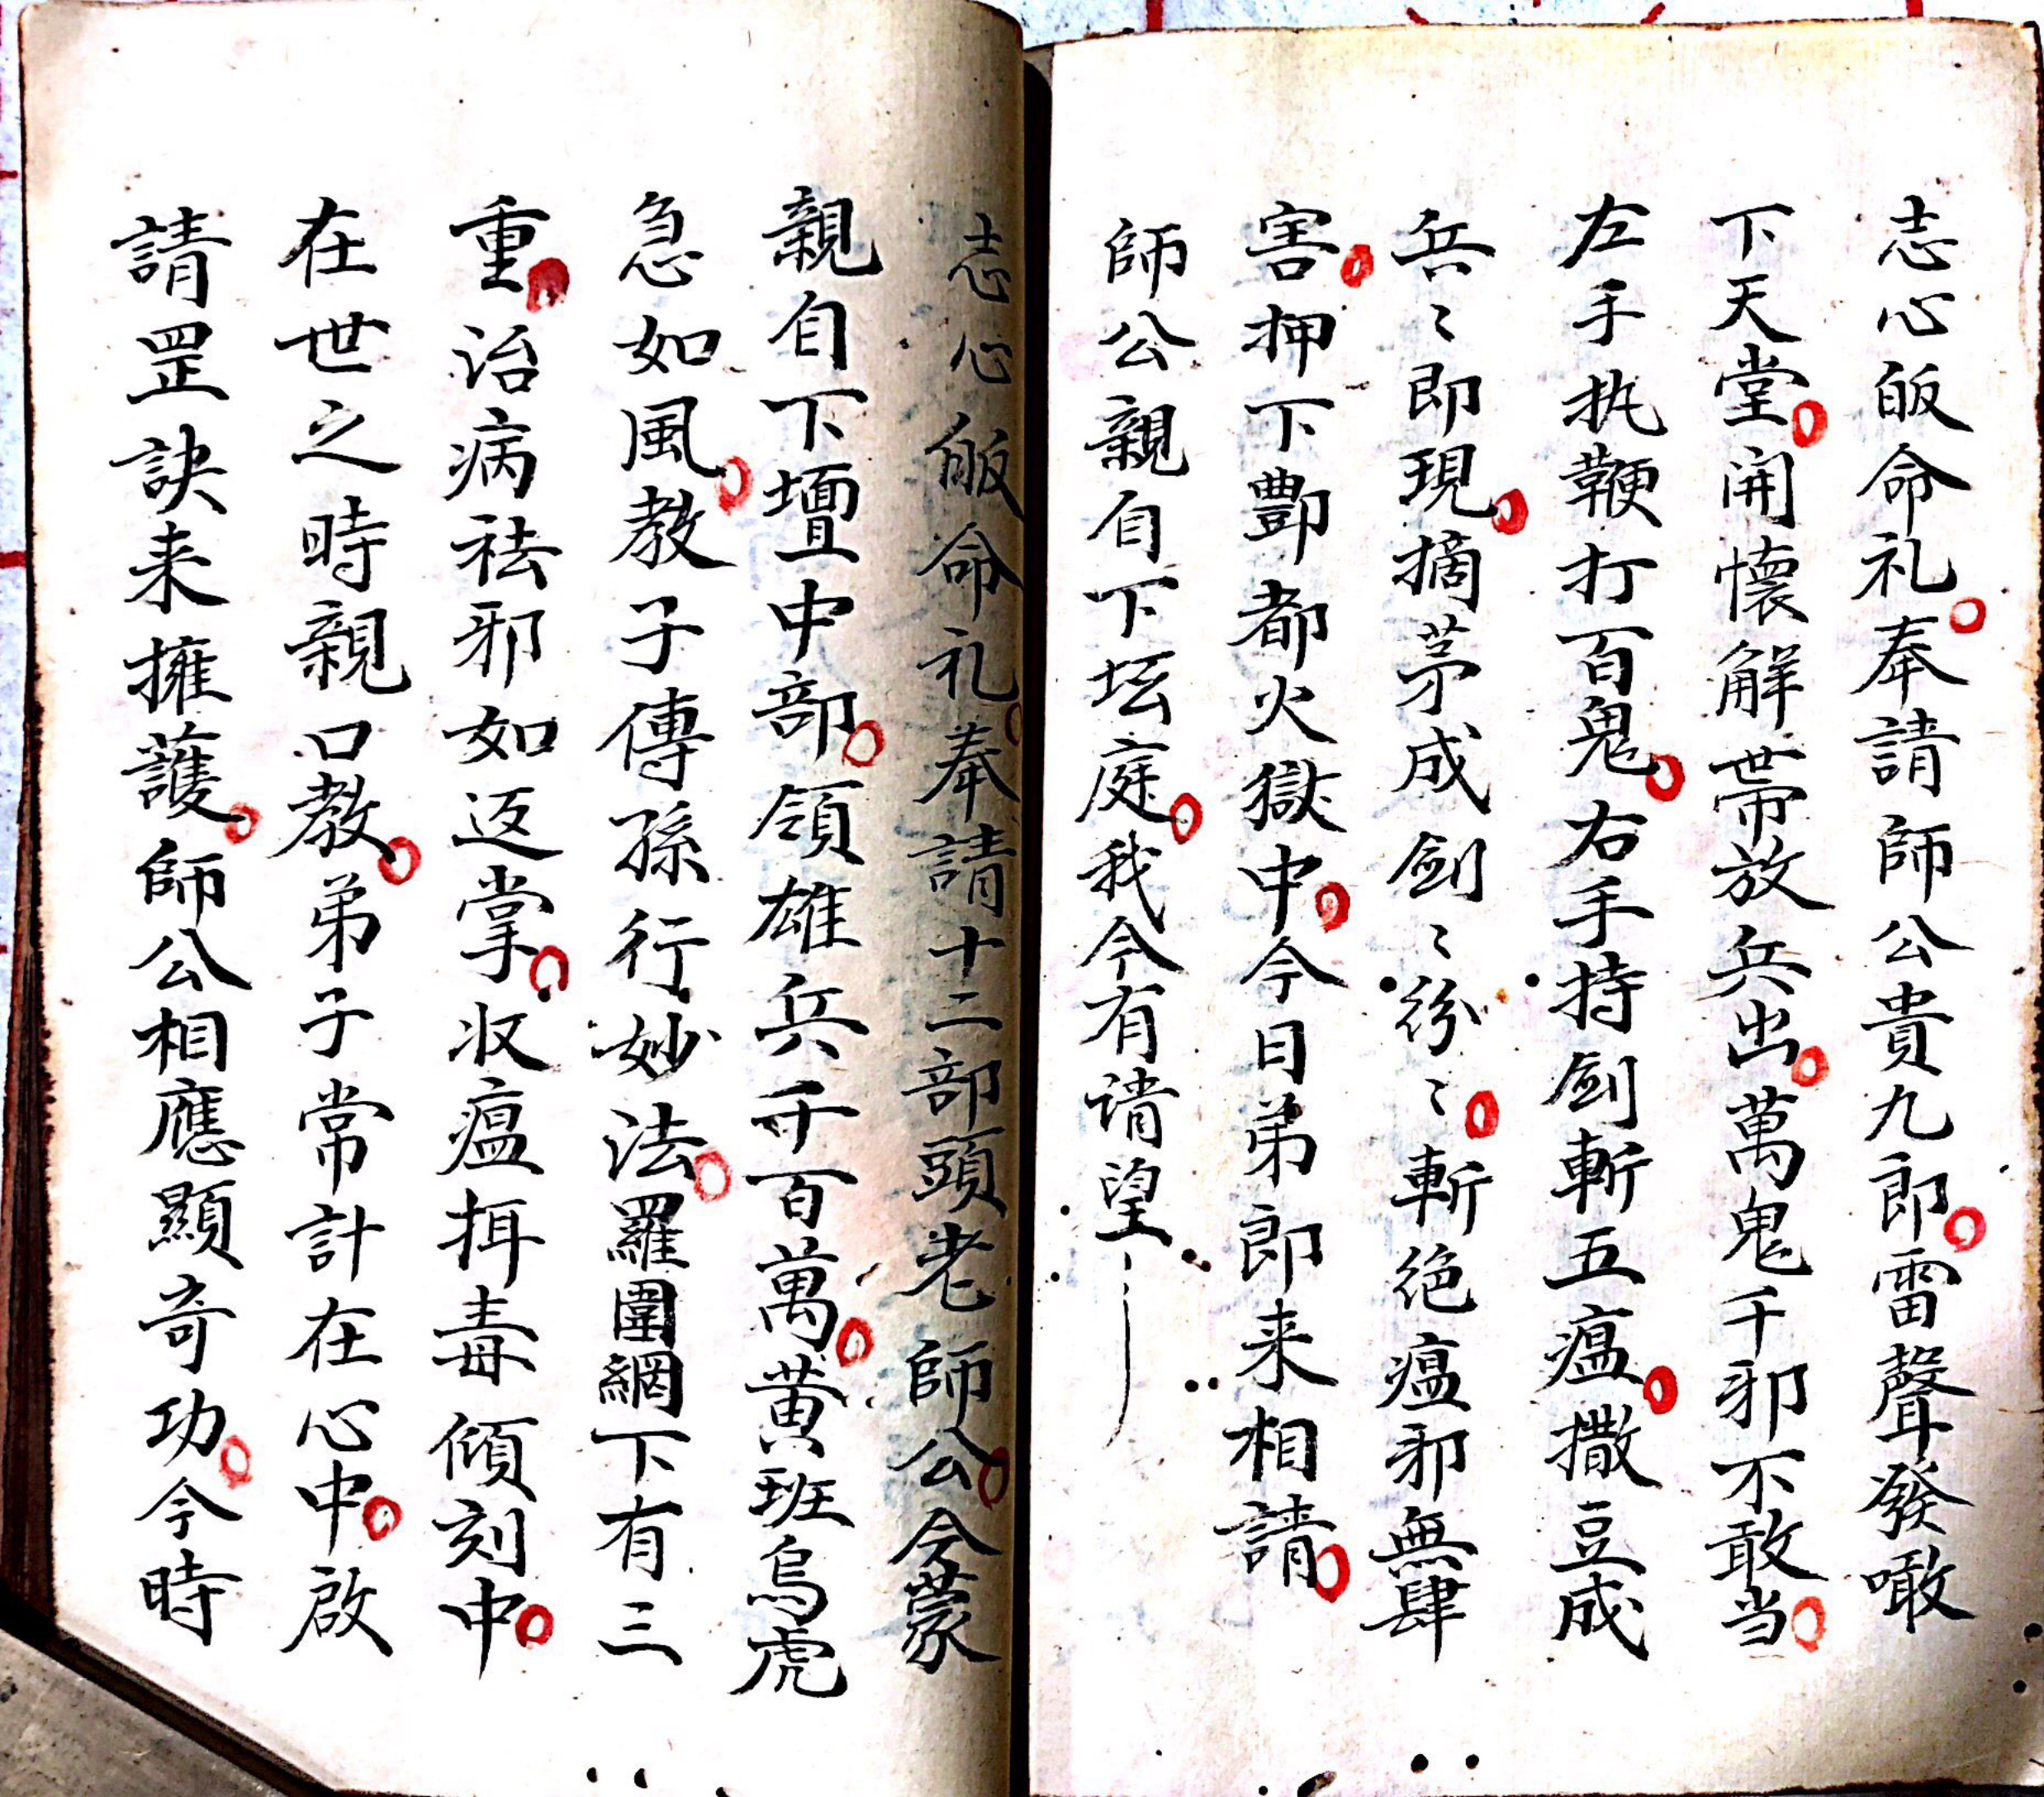 志心皈命礼奉請師公貴九郎雷聲發噉
下天堂開懷解帶放兵出萬鬼千邪不敢当
左手执鞭打百鬼右手持劍斬五瘟撒豆成
兵〻即現摘茅成劍〻紛〻斬絕瘟邪無肆
害押下酆都火獄中今日弟郎来相請
師公親自下坛庭我今有请望
志心皈命礼奉請十二部頭老師公今蒙
親自下壇中部領雄兵千百萬黄班烏虎
急如風教子傳孫行妙法羅圍網下有三
重治病祛邪如返掌收瘟揖毒傾刻中
在世之時親口教弟子常計在心中啟
請罡訣来擁護師公相應顯奇功今時